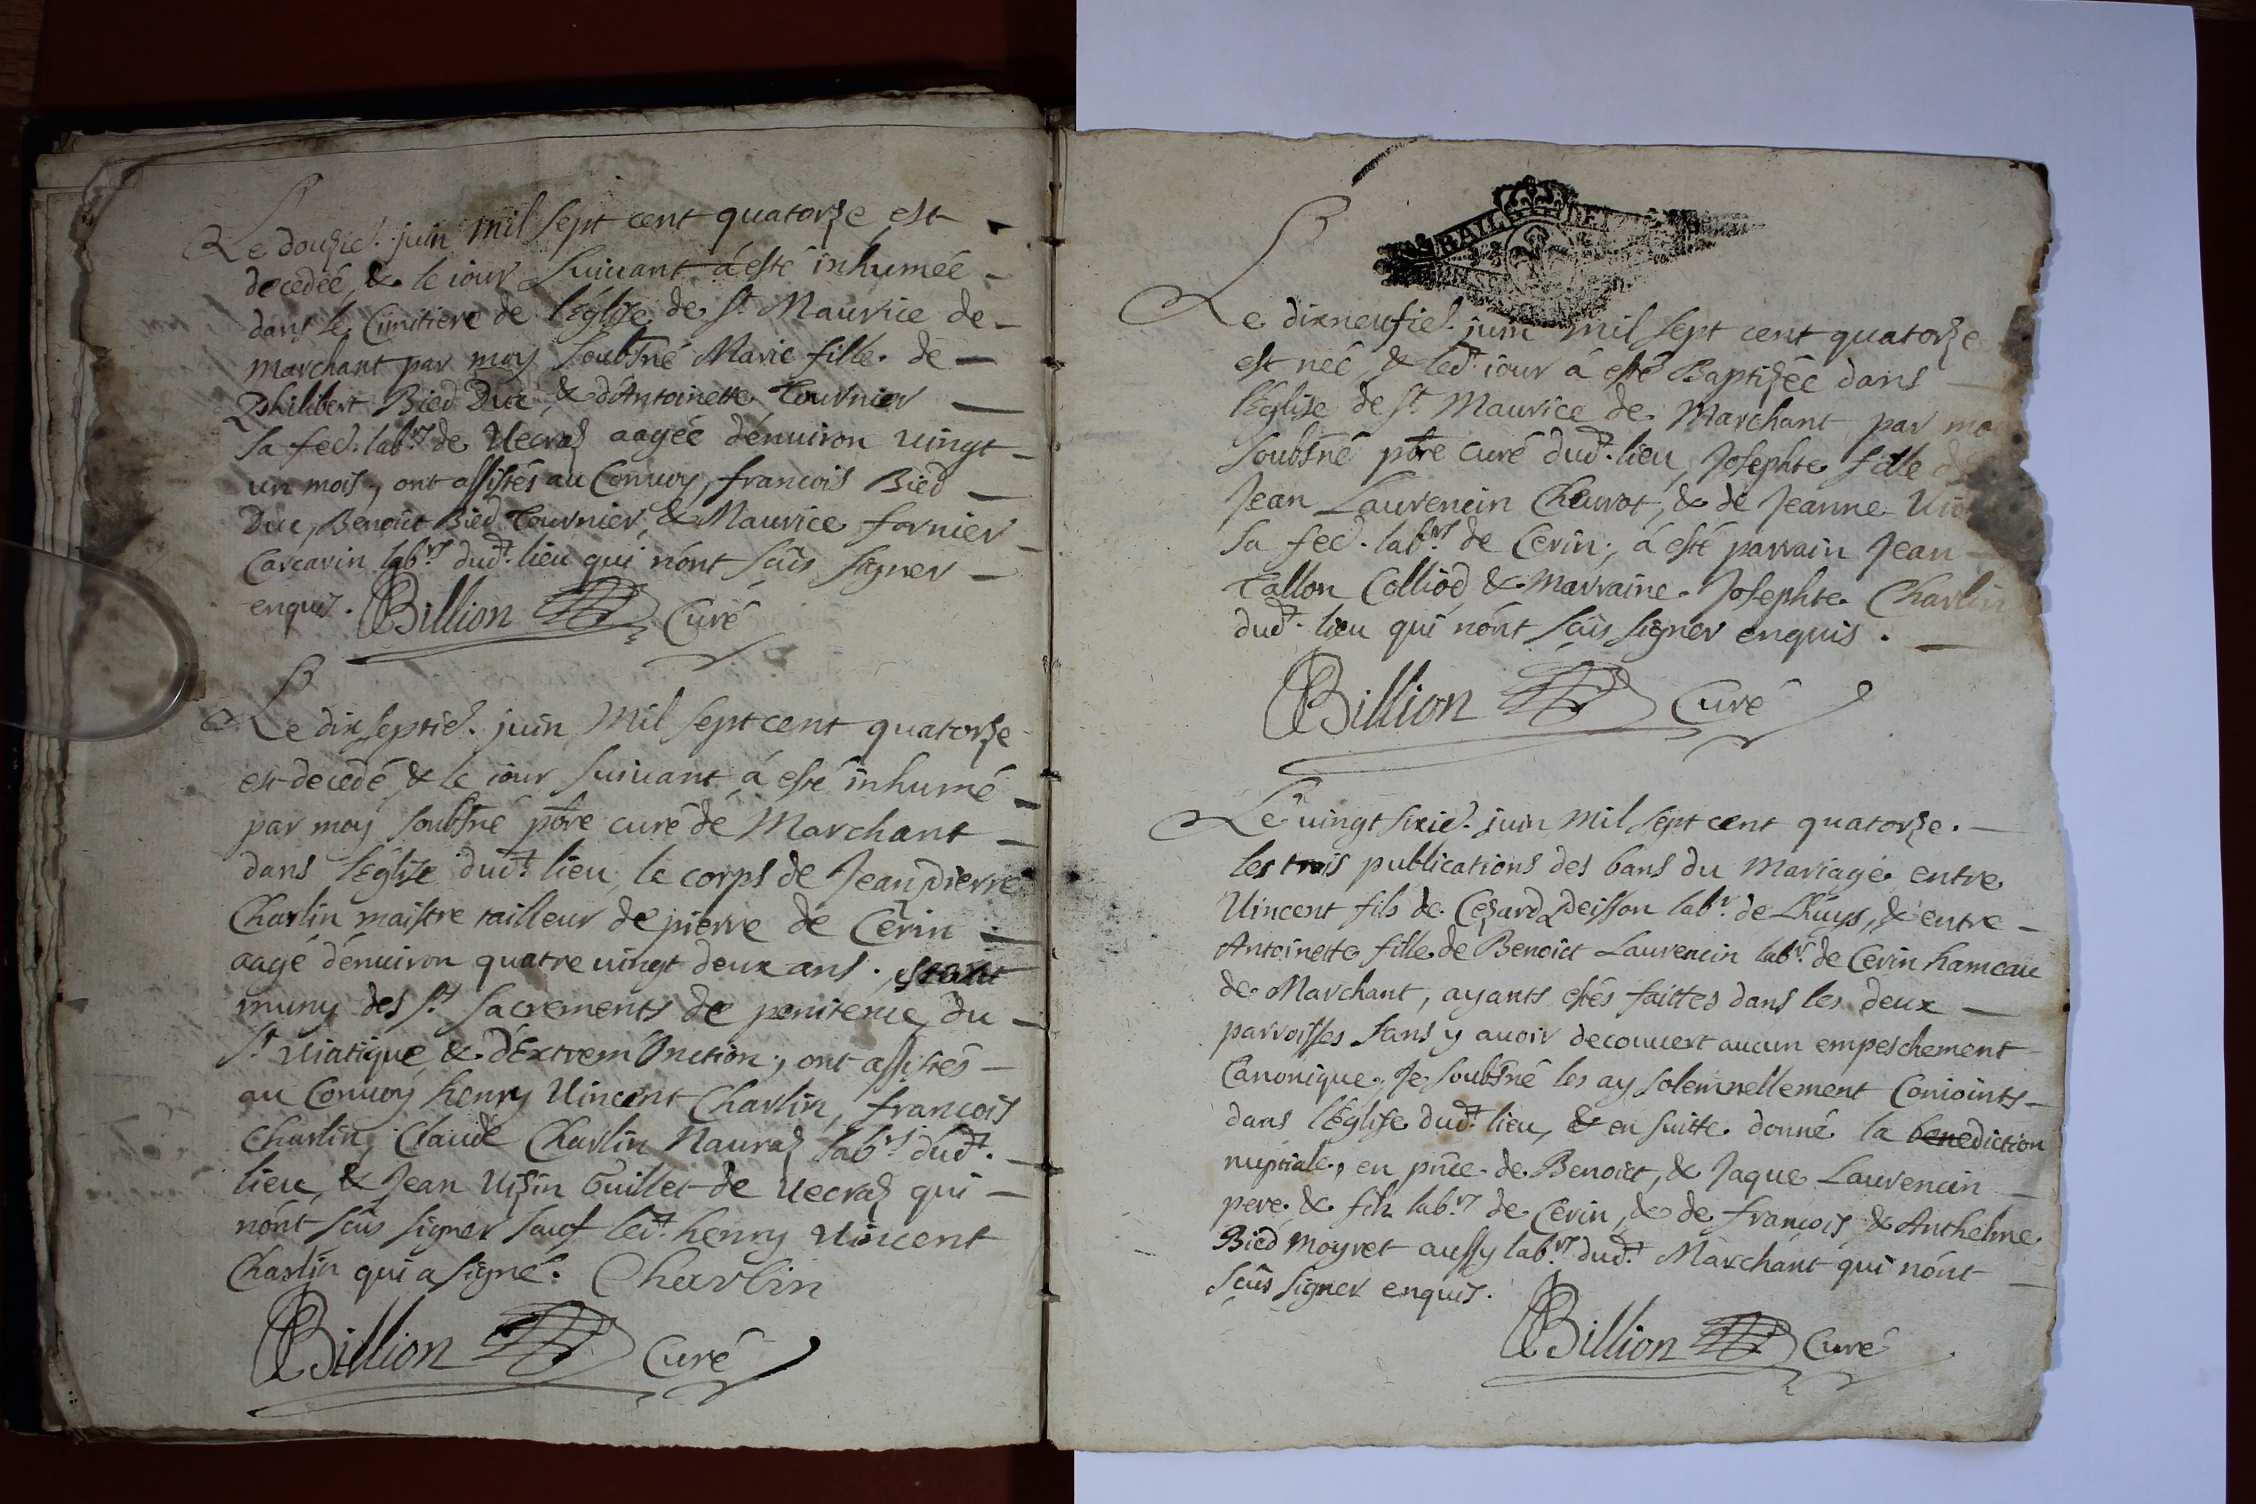 Le douzie. juin mil sept cent quatorze est
decedée, & le iour suiuant á esté inhumée
dans le Cimitiere de l'Eglise de St. Maurice de
marchant par moy soubsné Marie fille de
Philibert Bied Duc, & d'Antoinette Tournier
sa fee. labrs. de Uecraz aagée d'enuiron uingt
un mois, ont assistés au Conuoy, francois Bied
Duc, Benoict Bied Tournier, & Maurice fornier
Carcarin labrs. dudt. lieu qui n'ont sçûs signer
enquis. Billion Curé
Le dixseptie. juin mil sept cent quatorze
est decedé & le iour suiuant á esté inhumé
par moy soubsné pbre curé de Marchant
dans l'Eglise dudt. lieu, le corps de Jean pierre
Charlin maistre tailleur de pierre de Cerin
aagé d'enuiron quatre uingt deux ans.
muny des sts. sacrements de penitence, du
st. uiatique & d'Extrem Onction; ont assistés
au Conuoy henry Uincent Charlin, francois
Charlin, Claude Charlin Nauraz labrs. dudt.
lieu, & Jean Uizin Guillet de Uecraz qui
n'ont sçûs signer sauf ledt. henry Uincent
Charlin qui a signé. Charlin
Billion Curé
BAIL DE
Le dixneufie. juin mil sept cent quatorze
est née, & ledt. iour á esté Baptizée dans
l'Eglise de st. Maurice de Marchant par
soubsné pbre curé dudt. lieu, Josephte fille
Jean Laurencin Cheurot, & de Jeanne
sa fee. labrs. de Cerin; á esté parrain Jean
Tallon Colliod, & marraine Josephte Charlin
dudt. lieu qui n'ont sçûs signer enquis.
Billion Curé
Le uingt sixie. juin mil sept cent quatorze.
les trois publications des bans du mariage entre
Uincent fils de Cezard Deisson labr. de Lhuys, & entre
Antoinette fille de Benoict Laurencin labr. de Cerin hameau
de Marchant, ayants estés faittes dans les deux
parroisses sans y auoir decouuert aucun empeschement
Canonique, Je soubsné les ay solemnellement Conioints
dans l'Eglise dudt. lieu, & en suitte donné la benediction
nuptiale, en pñce de Benoict, & Jaque Laurencin
pere & fils labrs. de Cerin, & de francois & Anthelme
Bied moyret aussy labrs. dudt. Marchant qui n'ont
sçûs signer enquis.
Billion Curé